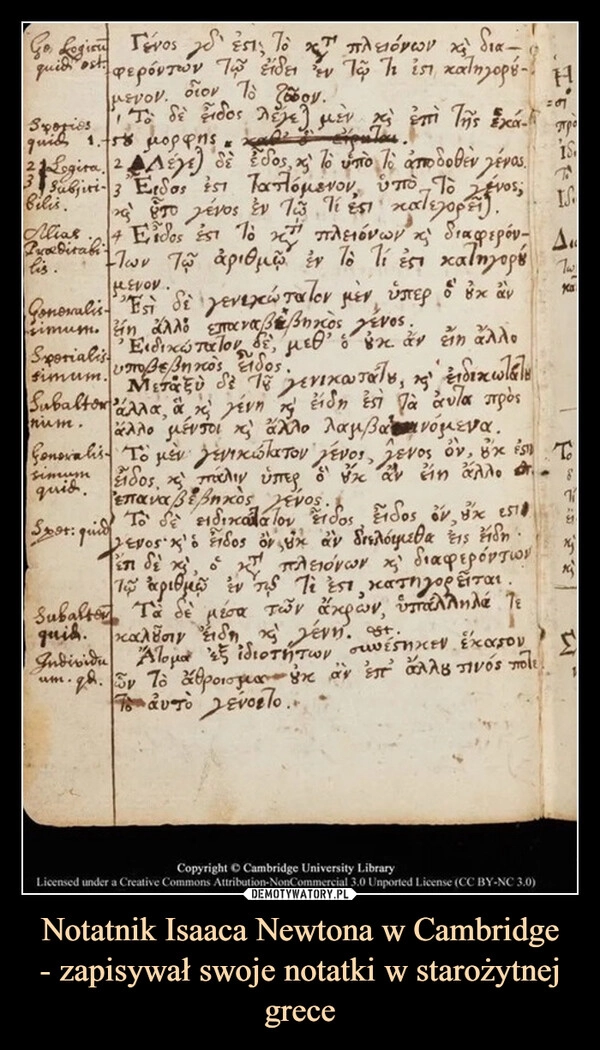 Ge. Logicū
quid est.
Γένος γδ' ἐστι, τὸ κτ πλειόνων κ̀ δια-
φερόντων τῷ εἴδει ἐν τῷ τι ἐστι κατηγορύ-
μενον. οἷον τὸ ζῶον.
Species
quid 1.
1 Τὸ δὲ εἶδος λέγε) μὲν κ̀ ἐπὶ τῆς ἑκά-
στȣ μορφης.
2 Logica.
2 Λέγε) δὲ εἶδος, κ̀ τὸ ὑπὸ τὸ ἀποδοθὲν γένος.
3 Subjici-
bilis.
3 Εἶδος ἐστι ταττόμενον ὑπὸ τὸ γένος,
κ̀ ȣ̔̃το γένος ἐν τῷ τί ἐστι κατεγορεῖ).
Alias.
Prædicabi-
lis.
4 Εἶδος ἐστι τὸ κτ πλειόνων κ̀ διαφερόν-
των τῷ ἀριθμῷ ἐν τὸ τί ἐστι κατηγορȣ́
μενον.
Generalis-
simum.
Ἔστι δὲ γενικώτατον μὲν, ὑπερ ὃ ȣ̓κ ἂν
εἴη ἄλλο ἐπαναβεβηκὸς γένος.
Specialis-
simum.
Εἰδικώτατον δὲ, μεθ' ὃ ȣ̓κ ἂν εἴη ἄλλο
ὑποβεβηκὸς εἶδος.
Subalter-
num.
Μεταξὺ δὲ τȣ̃ γενικωτάτȣ, κ̀ εἰδικωτάτȣ
ἄλλα, ἃ κ̀ γένη κ̀ εἴδη ἐστι τὰ ἀυτα πρὸς
ἄλλο μέντοι κ̀ ἄλλο λαμβανόμενα.
Generalis-
simum
quid.
Τὸ μὲν γενικώτατον γένος, γένος ὂν, ȣ̓κ ἐστι
εἶδος, κ̀ πάλιν ὑπερ ὃ ȣ̓κ ἂν εἴη ἄλλο
ἐπαναβεβηκὸς γένος.
Spec: quid
Τὸ δὲ ειδικώτατον εἶδος, εἶδος ὂν, ȣ̓κ ἐστι
γενος· κ̀ ὃ εἶδος ὂν ȣ̓κ ἂν διελόιμεθα ἐις ἔιδη·
ἔτι δὲ κ̀, ὃ κτ πλειόνων κ̀ διαφερόντων
τῷ ἀριθμῷ ἐν τῷ τὶ ἐστι κατηγορεῖται.
Subalter
quid.
Τὰ δὲ μέσα τῶν ἄκρων, ὑπάλληλά τε
καλȣ̃σιν εἴδη κ̀ γένη.
Individu
um. qd.
Ἄτομα ἐξ ἰδιοτήτων συνέστηκεν ἕκαστον
ὧν τὸ ἄθροισμα ȣ̓κ ἂν ἐπ' ἄλλȣ τινός ποτε
τὸ ἀυτὸ γένοιτο.
Copyright © Cambridge University Library
Licensed under a Creative Commons Attribution-NonCommercial 3.0 Unported License (CC BY-NC 3.0)
DEMOTYWATORY.PL
Notatnik Isaaca Newtona w Cambridge
- zapisywał swoje notatki w starożytnej
grece